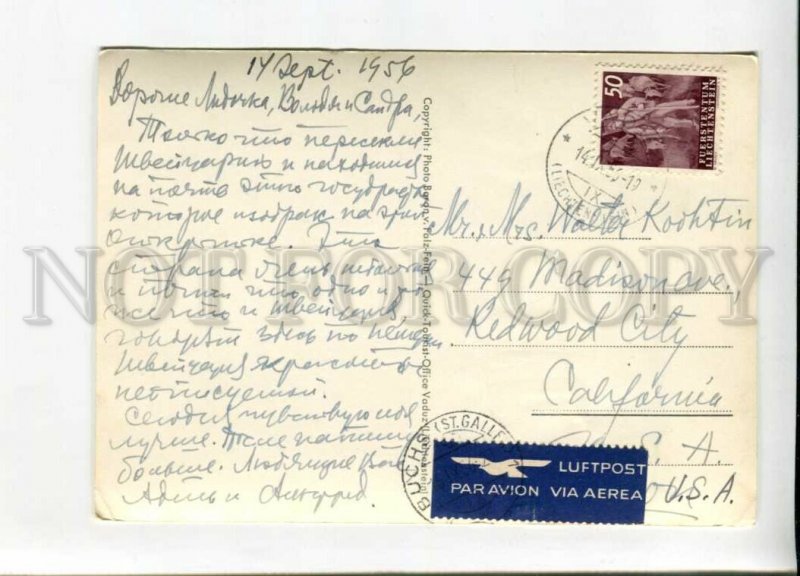 14 Sept. 1956
Дорогие Лидочка, Володя и Сандра,
Только что пересекли
Швейцарию и находимся
на почте этого государства
которое изображ на этой
открытке. Эта
страна очень
и почти что одно и то
же что и Швейцария,
говорят здесь по немец
Швейцария красоты
неописуемой.
Сегодня чувствую себя
лучше. После напишу
больше. Любящие Вас
Адель и Альфред.
Copyright: Photo Baron v. Falz-Fein — Quick-Tourist-Office Vaduz (Liechtenstein)
50
FUERSTENTUM
LIECHTENSTEIN
Mr., Mrs. Walter
449 Madison ave,
Redwood City
California
U. S. A.
U.S.A.
BUCHS (ST. GALLEN)
LUFTPOST
PAR AVION VIA AEREA
NOT FOR COPY